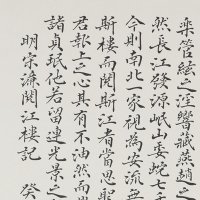 樂管絃之淫響藏燕趙之
然長江發源岷山委蛇七千
今則南北一家視為安流無
斯樓而閱斯江者當思聖
君報上之心其有不油然而
諸貞珉他若留連光景之
明宋濂閱江樓記 癸